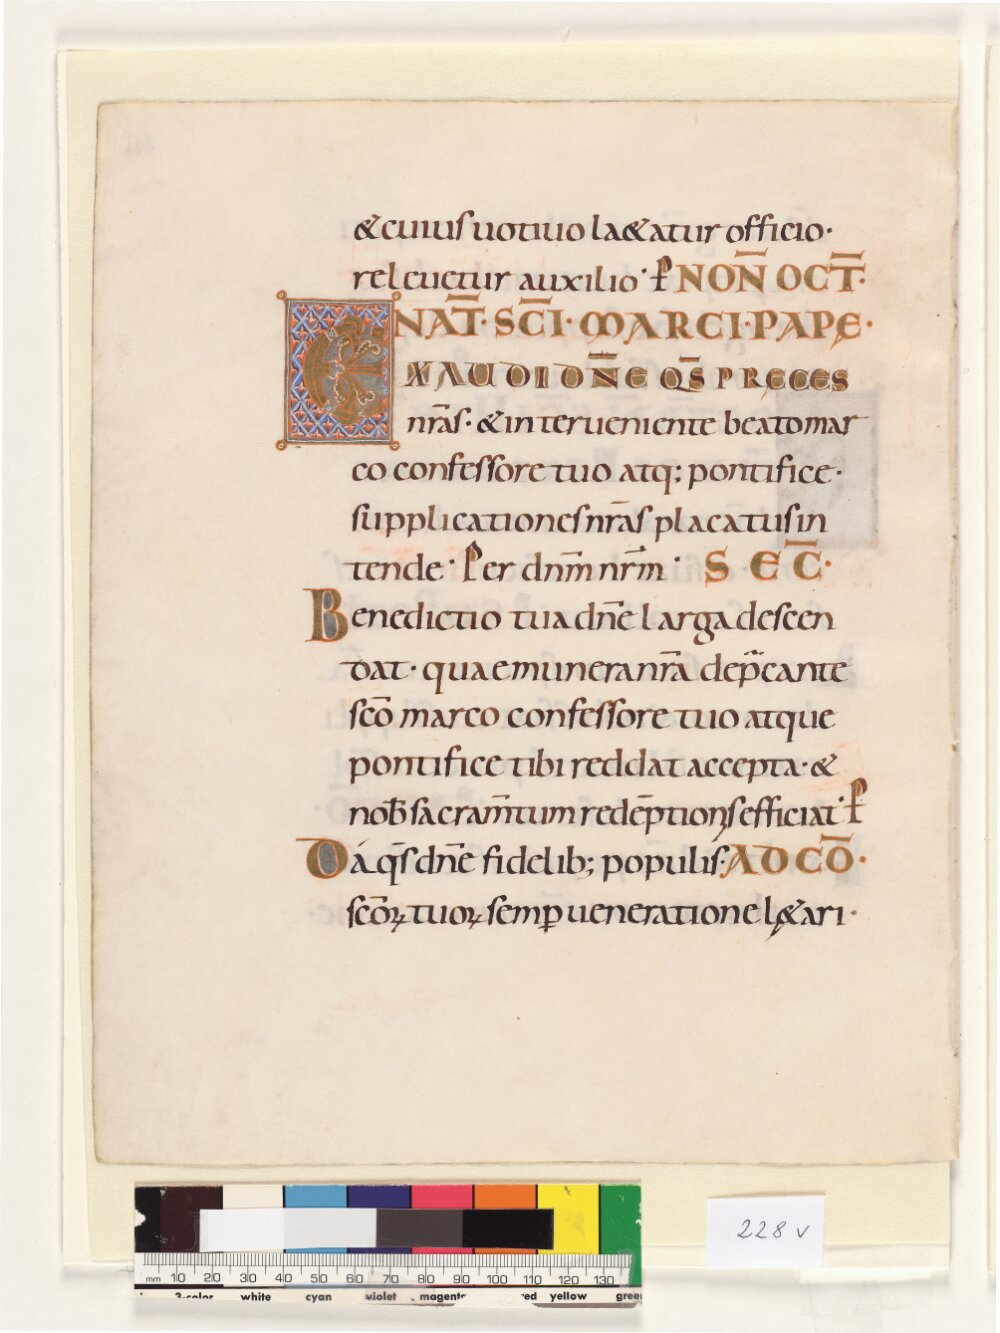 &cuiuſ uotiuo la&atur officio·
releuetur auxilio· P̄ NON̄ OCT̄·
NAT̄· SC̄I· MARCI· PAPE·
EXAUDI DN̄E QS̄ PRECES
nr̄aſ· & interueniente beato mar
co confeſſore tuo atq; pontifice·
ſupplicationeſ nr̄aſ placatuſ in
tende· Per dn̄m nr̄m· SEC̄·
Benedictio tua dn̄e larga deſcen
dat· quae munera nr̄a dep̄cante
ſc̄o marco confeſſore tuo atque
pontifice tibi reddat accepta· &
nob̄ ſacram̄tum redēptionıſ efficiat· P̄
Dá q̄ſ dn̄e fidelib; populiſ· AD CŌ·
ſc̄oꝝ tuoꝝ ſemꝑ ueneratione l&ari·
228 v
mm 10 20 30 40 50 60 70 80 90 100 110 120 130
3-color white cyan violet magenta red yellow green